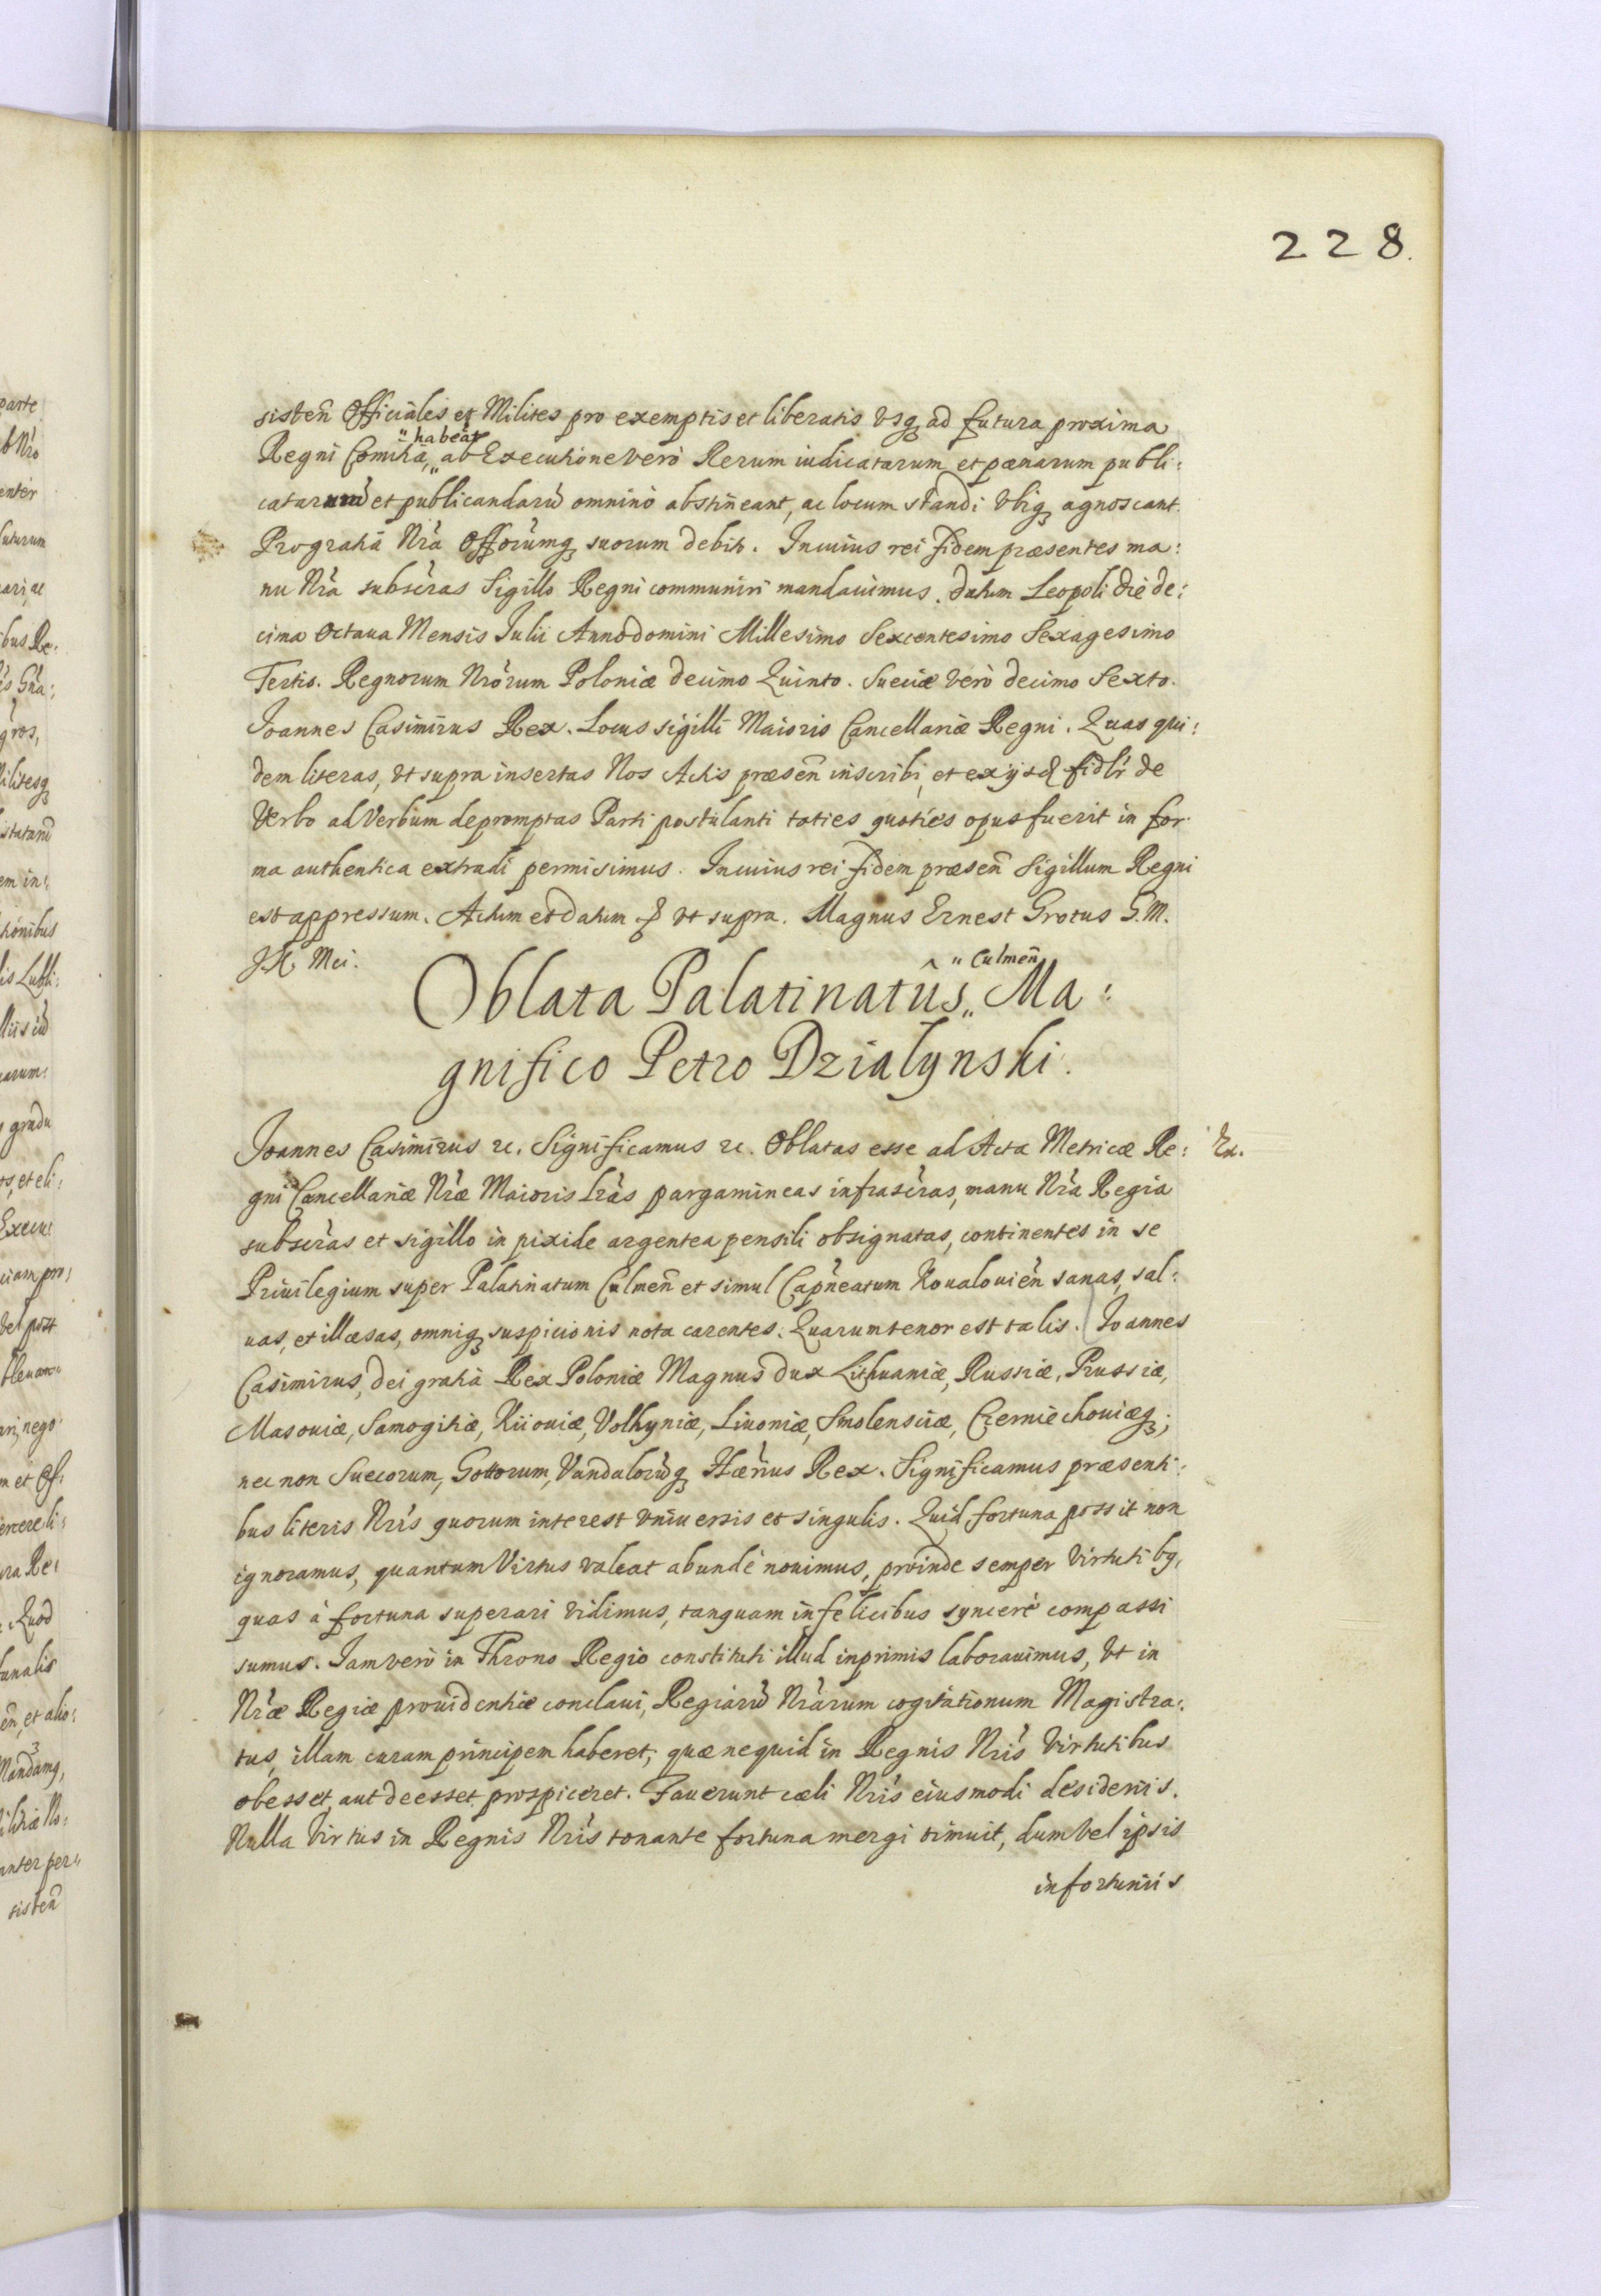 228.
sisteñ Officiales et Milites pro exemptis et liberatis Vsq ad futura proxima
Regni Comitia, „habeãt„ ab Executione verò Rerum iudicatarum et pœnarum publi:
catarum et publicandarũ omninò abstineant, ac locum standi Vbiq agnoscant
Pro gratia Nrã Offorumq suorum debito. In cuius rei fidem præsentes ma:
nu Nrã subscras Sigillo Regni communiri mandauimus. Datum Leopoli die de:
cima Octaua Mensis Julii Anno domini Millesimo Sexcentesimo Sexagesimo
Tertio. Regnorum Nrorum Poloniæ decimo Quinto. Sueciæ Verò decimo Sexto.
Joannes Casimirus Rex. Locus sigilli Maioris Cancellariæ Regni. Quas qui:
dem literas, Vt supra insertas Nos Actis præseñ inscribi, et ex ijsd fidlr de
Verbo ad Verbum depromptas Parti postulanti toties quoties opus fuerit in for:
ma authentica extradi permisimus. In cuius rei fidem præseñ Sigillum Regni
est appressum. Actum et Datum Vt supra. Magnus Ernest Grotus S. M.
Mei.
Oblata Palatinatûs „Culmeñ„ Ma:
gnifico Petro Dzialynski.
Joannes Casimirus ꝛc. Significamus ꝛc. Oblatas esse ad Acta Metricæ Re:
Ex.
gni Cancellariæ Nræ Maioris Lras pargamineas infrascras, manu Nra Regia
subscras et sigillo in pixide argentea pensili obsignatas, continentes in se
Priuilegium super Palatinatum Culmeñ et simul Capneatum Koualouieñ sanas, sal:
uas, et illæsas, omniq suspicionis nota carentes. Quarum tenor est talis. Joannes
Casimirus, Dei gratia Rex Poloniæ Magnus Dux Lithuaniæ, Russiæ, Prussiæ,
Masouiæ, Samogitiæ, Kiiouiæ, Volhyniæ, Liuoniæ, Smolensciæ, Czerniechouiæq;
nec non Suecorum, Gottorum, Vandalorũq Hærius Rex. Significamus præsenti:
bus literis Nris quorum interest Vniuersis et singulis. Quid fortuna possit non
ignoramus, quantum Virtus valeat abundè nouimus, proinde semper Virtutibq,
quas à fortuna superari Vidimus, tanquam infelicibus syncerè compassi
sumus. Jam verò in Throno Regio constituti illud inprimis laborauimus, Vt in
Nræ Regiæ prouidentiæ conclaui, Regiarũ Nrarum cogitationum Magistra:
tus, illam curam principem haberet, quæ nequid in Regnis Nris Virtutibus
obesset, aut deesset prospiceret. Fauerunt cæli Nris eiusmodi desideriis.
Nulla Virtus in Regnis Nris tonante fortuna mergi timuit, dum Vel ipsis
infortuniis